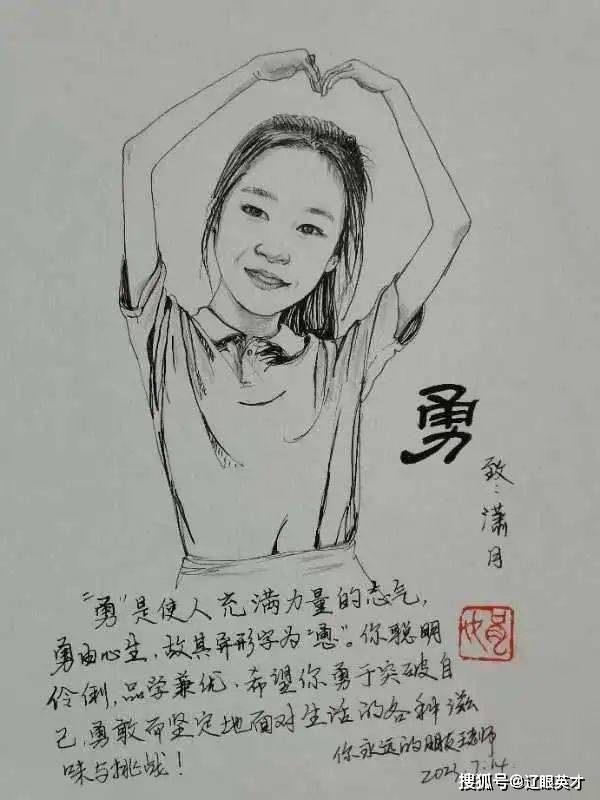 勇
致：潇月
“勇”是使人充满力量的志气，
勇由心生，故其异形字为“恿”。你聪明
伶俐，品学兼优，希望你勇于突破自
己，勇敢而坚定地面对生活的各种滋
味与挑战！
你永远的朋友王老师
2022.7.14.
搜狐号@辽眼英才